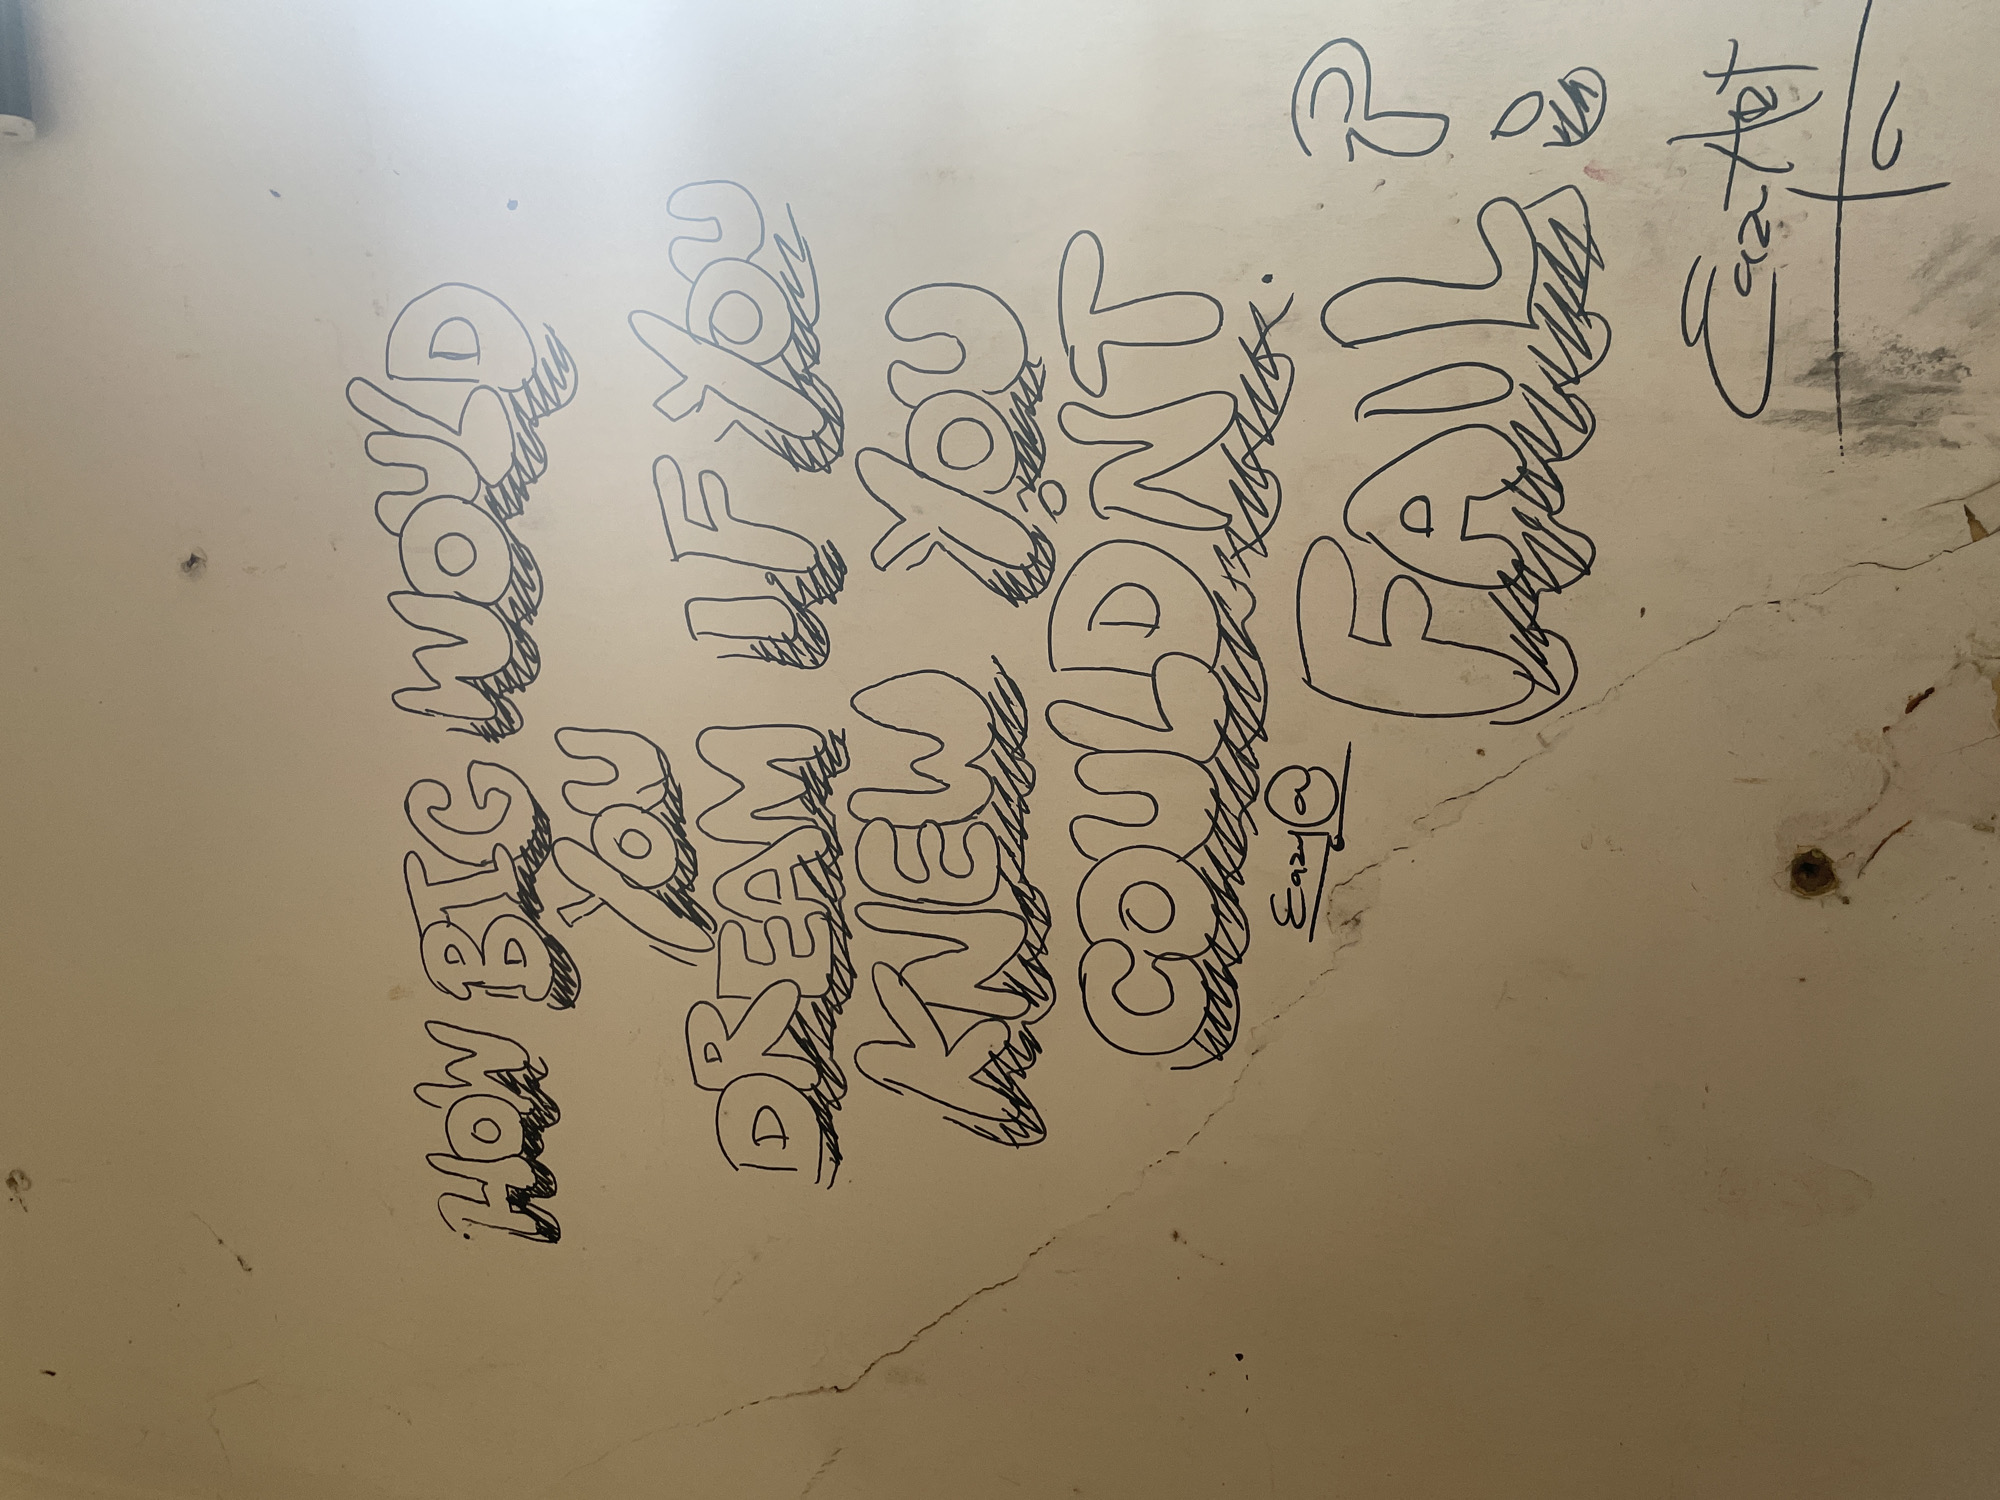 HOW BIG WOULD
YOU
DREAM IF YOU
KNEW YOU
COULDNT
FAIL?
Eazy